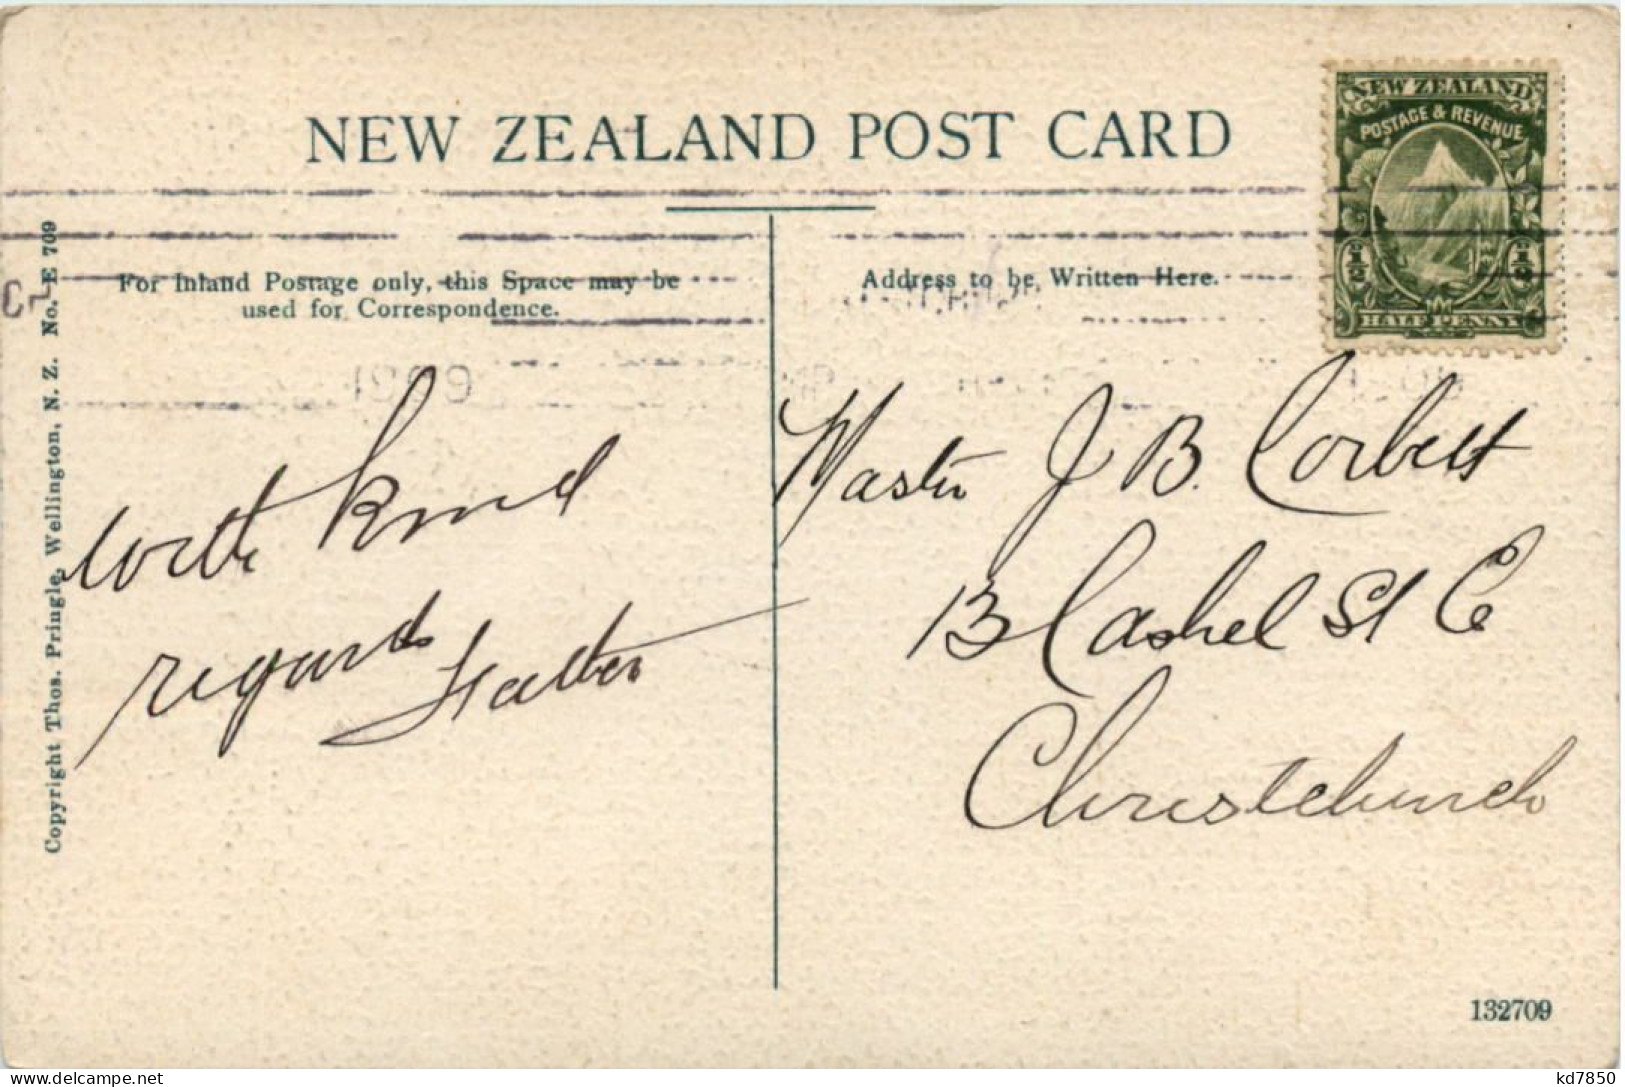 NEW ZEALAND POST CARD
NEW ZEALAND
POSTAGE & REVENUE
1/2
1/2
HALF PENNY
For Inland Postage only, this Space may be
used for Correspondence.
Address to be Written Here.
Copyright Thos. Pringle, Wellington, N. Z. No. E 709
with kind
regards
Master J B. Corbett
Cashel St E
Christchurch
132709
kd7850